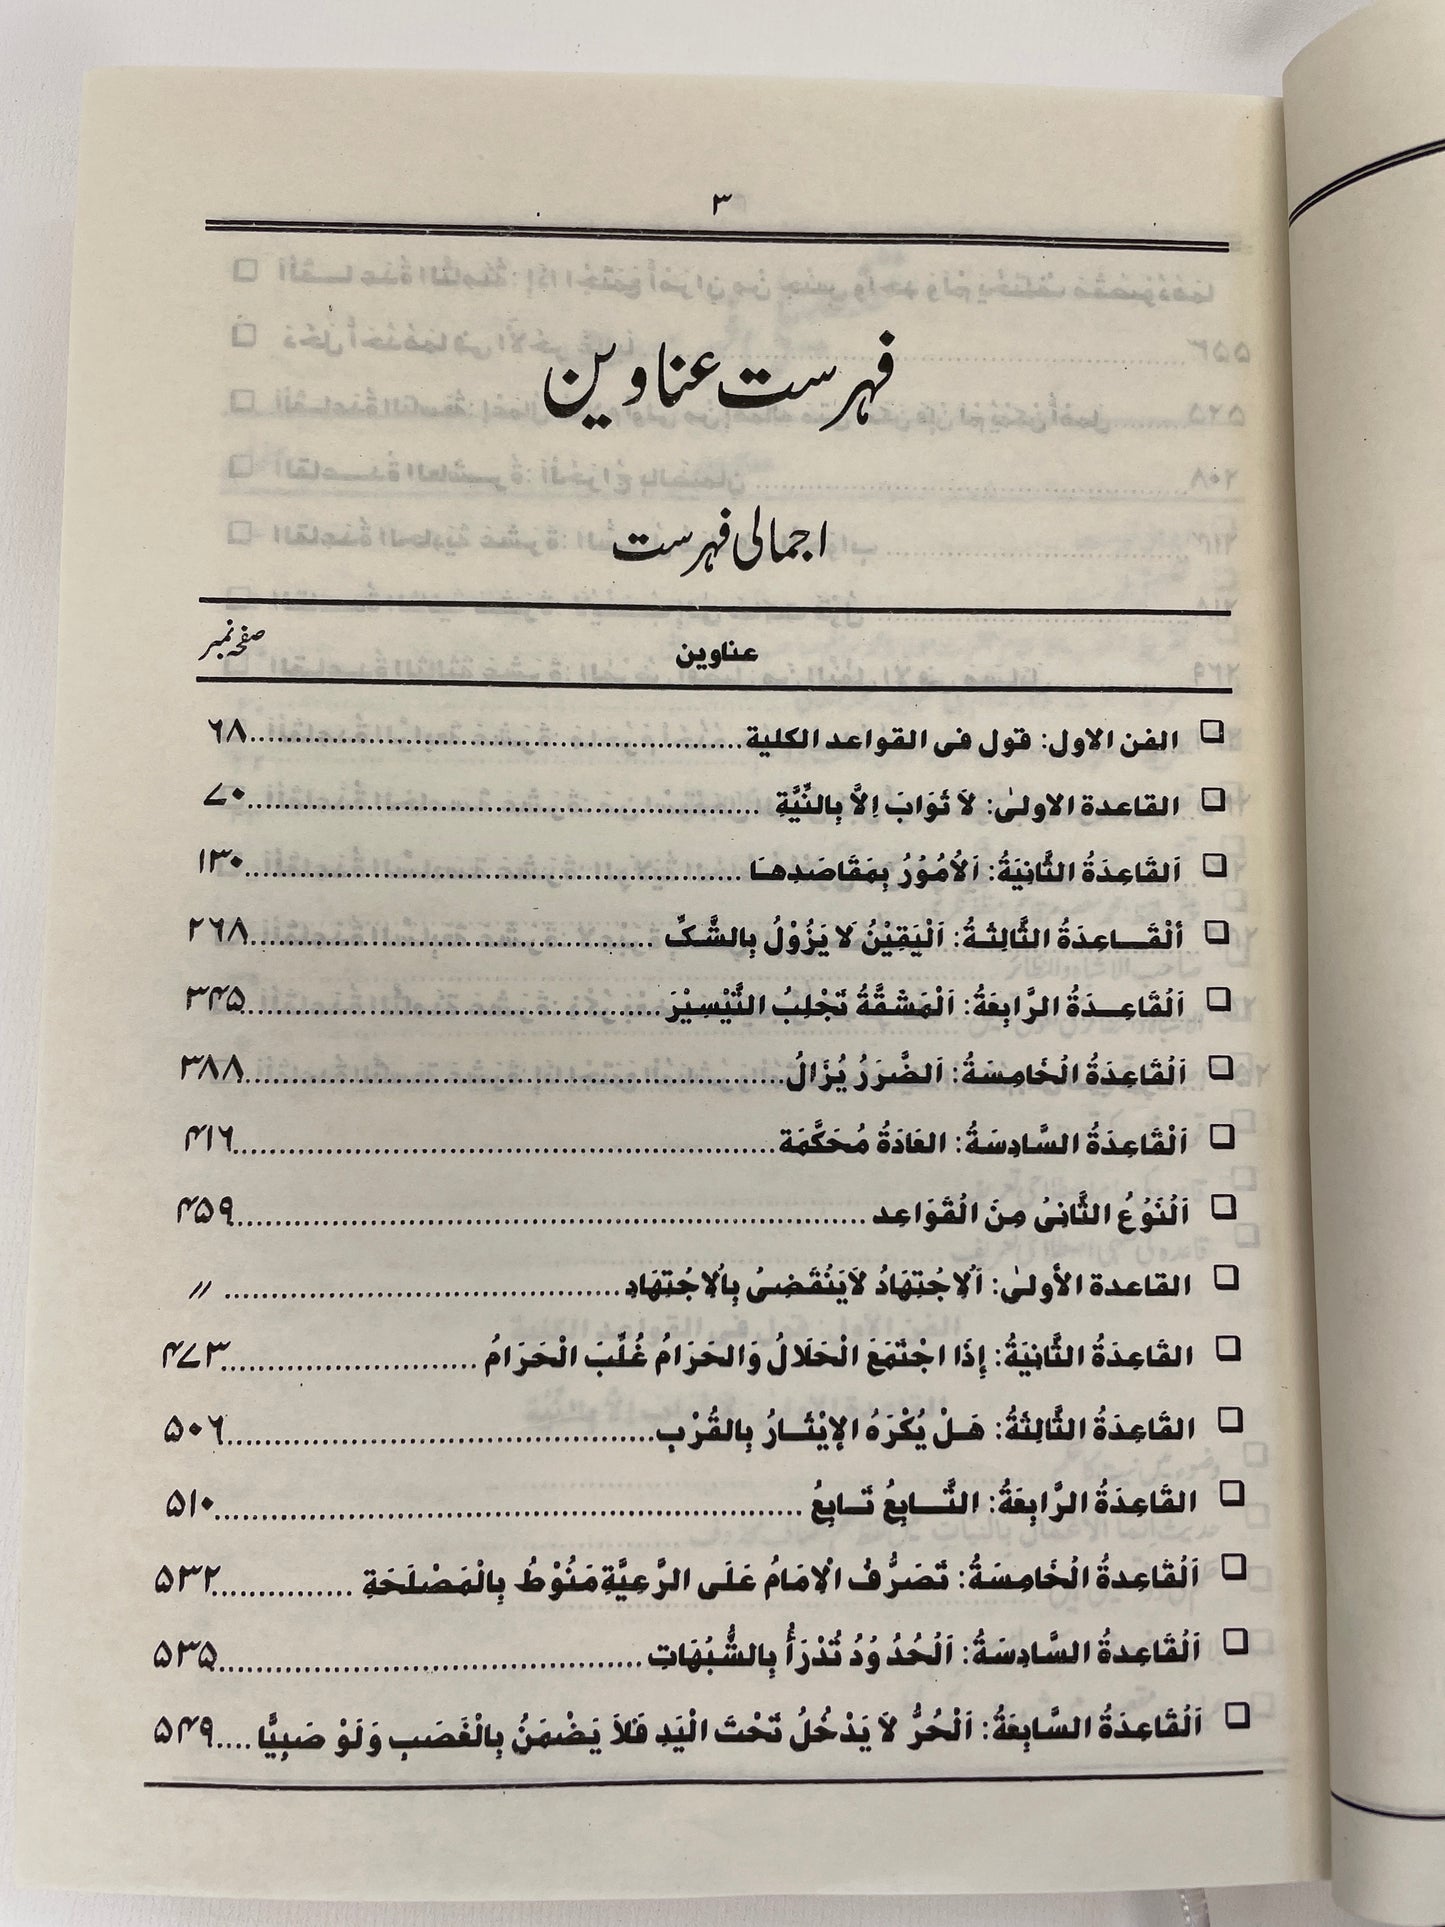 ۳
فہرست عناوین
اجمالی فہرست
عناوین صفحہ نمبر
❏ الفن الاول: قول فی القواعد الکلیة ........ ۶۸
❏ القاعدة الاولیٰ: لاَ ثَوَابَ اِلاَّ بِالنِّیَّةِ ........ ۷۰
❏ اَلقَاعِدَةُ الثَّانِیَةُ: اَلاُمُوُرُ بِمَقَاصَدِهَا ........ ۱۳۰
❏ ألْقَاعِدَةُ الثَّالِثَةُ: اَلْیَقِیْنُ لَا یَزُوْلُ بِالشَّکِّ ........ ۲۶۸
❏ اَلُقَاعِدَةُ الرَّابِعَةُ: اَلْمَشَقَّةُ تَجْلِبُ التَّیْسِیْرَ ........ ۳۴۵
❏ اَلُقَاعِدَةُ الُخَامِسَةُ: اَلضَّرَرُ یُزَالُ ........ ۳۸۸
❏ اَلْقَاعِدَةُ السَّادِسَةُ: العَادَةُ مُحَکَّمَة ........ ۴۱۶
❏ اَلُنَوُعُ الثَّانِیُ مِنَ الُقَوَاعِد ........ ۴۵۹
❏ القاعدة الأولیٰ: اَلُاِجُتِهَادُ لاَیَنُقَضِیُ بِالُاِجُتِهَادِ ........ //
❏ القَاعِدَةُ الثَّانِیَةُ: إِذَا اجْتَمَعَ الْحَلَالُ وَالحَرَامُ غُلِّبَ الْحَرَامُ ........ ۴۷۳
❏ القَاعِدَةُ الثَّالِثَةُ: هَلْ یُکْرَهُ الإیْثَارُ بِالقُرْبِ ........ ۵۰۶
❏ القَاعِدَةُ الرَّابِعَةُ: التَّابِعُ تَابِعُ ........ ۵۱۰
❏ اَلُقَاعِدةُ الُخَامِسَةُ: تَصَرُّفُ الْاِمَامُ عَلَی الرَّعِیَّةِ مَنُوْطُ بِالْمَصْلَحَةِ ........ ۵۳۲
❏ اَلُقَاعِدةُ السَّادِسَةُ: اَلُحُدُوُدُ تُدْرَأُ بِالشُّبُهَاتِ ........ ۵۳۵
❏ اَلُقَاعِدَةُ السَّابِعَةُ: اَلْحُرُّ لاَ یَدْخُلُ تَحْتَ الْیَدِ فَلاَ یَضْمَنُ بِالْغَصَبِ وَلَوْ صَبِیًّا .... ۵۴۹